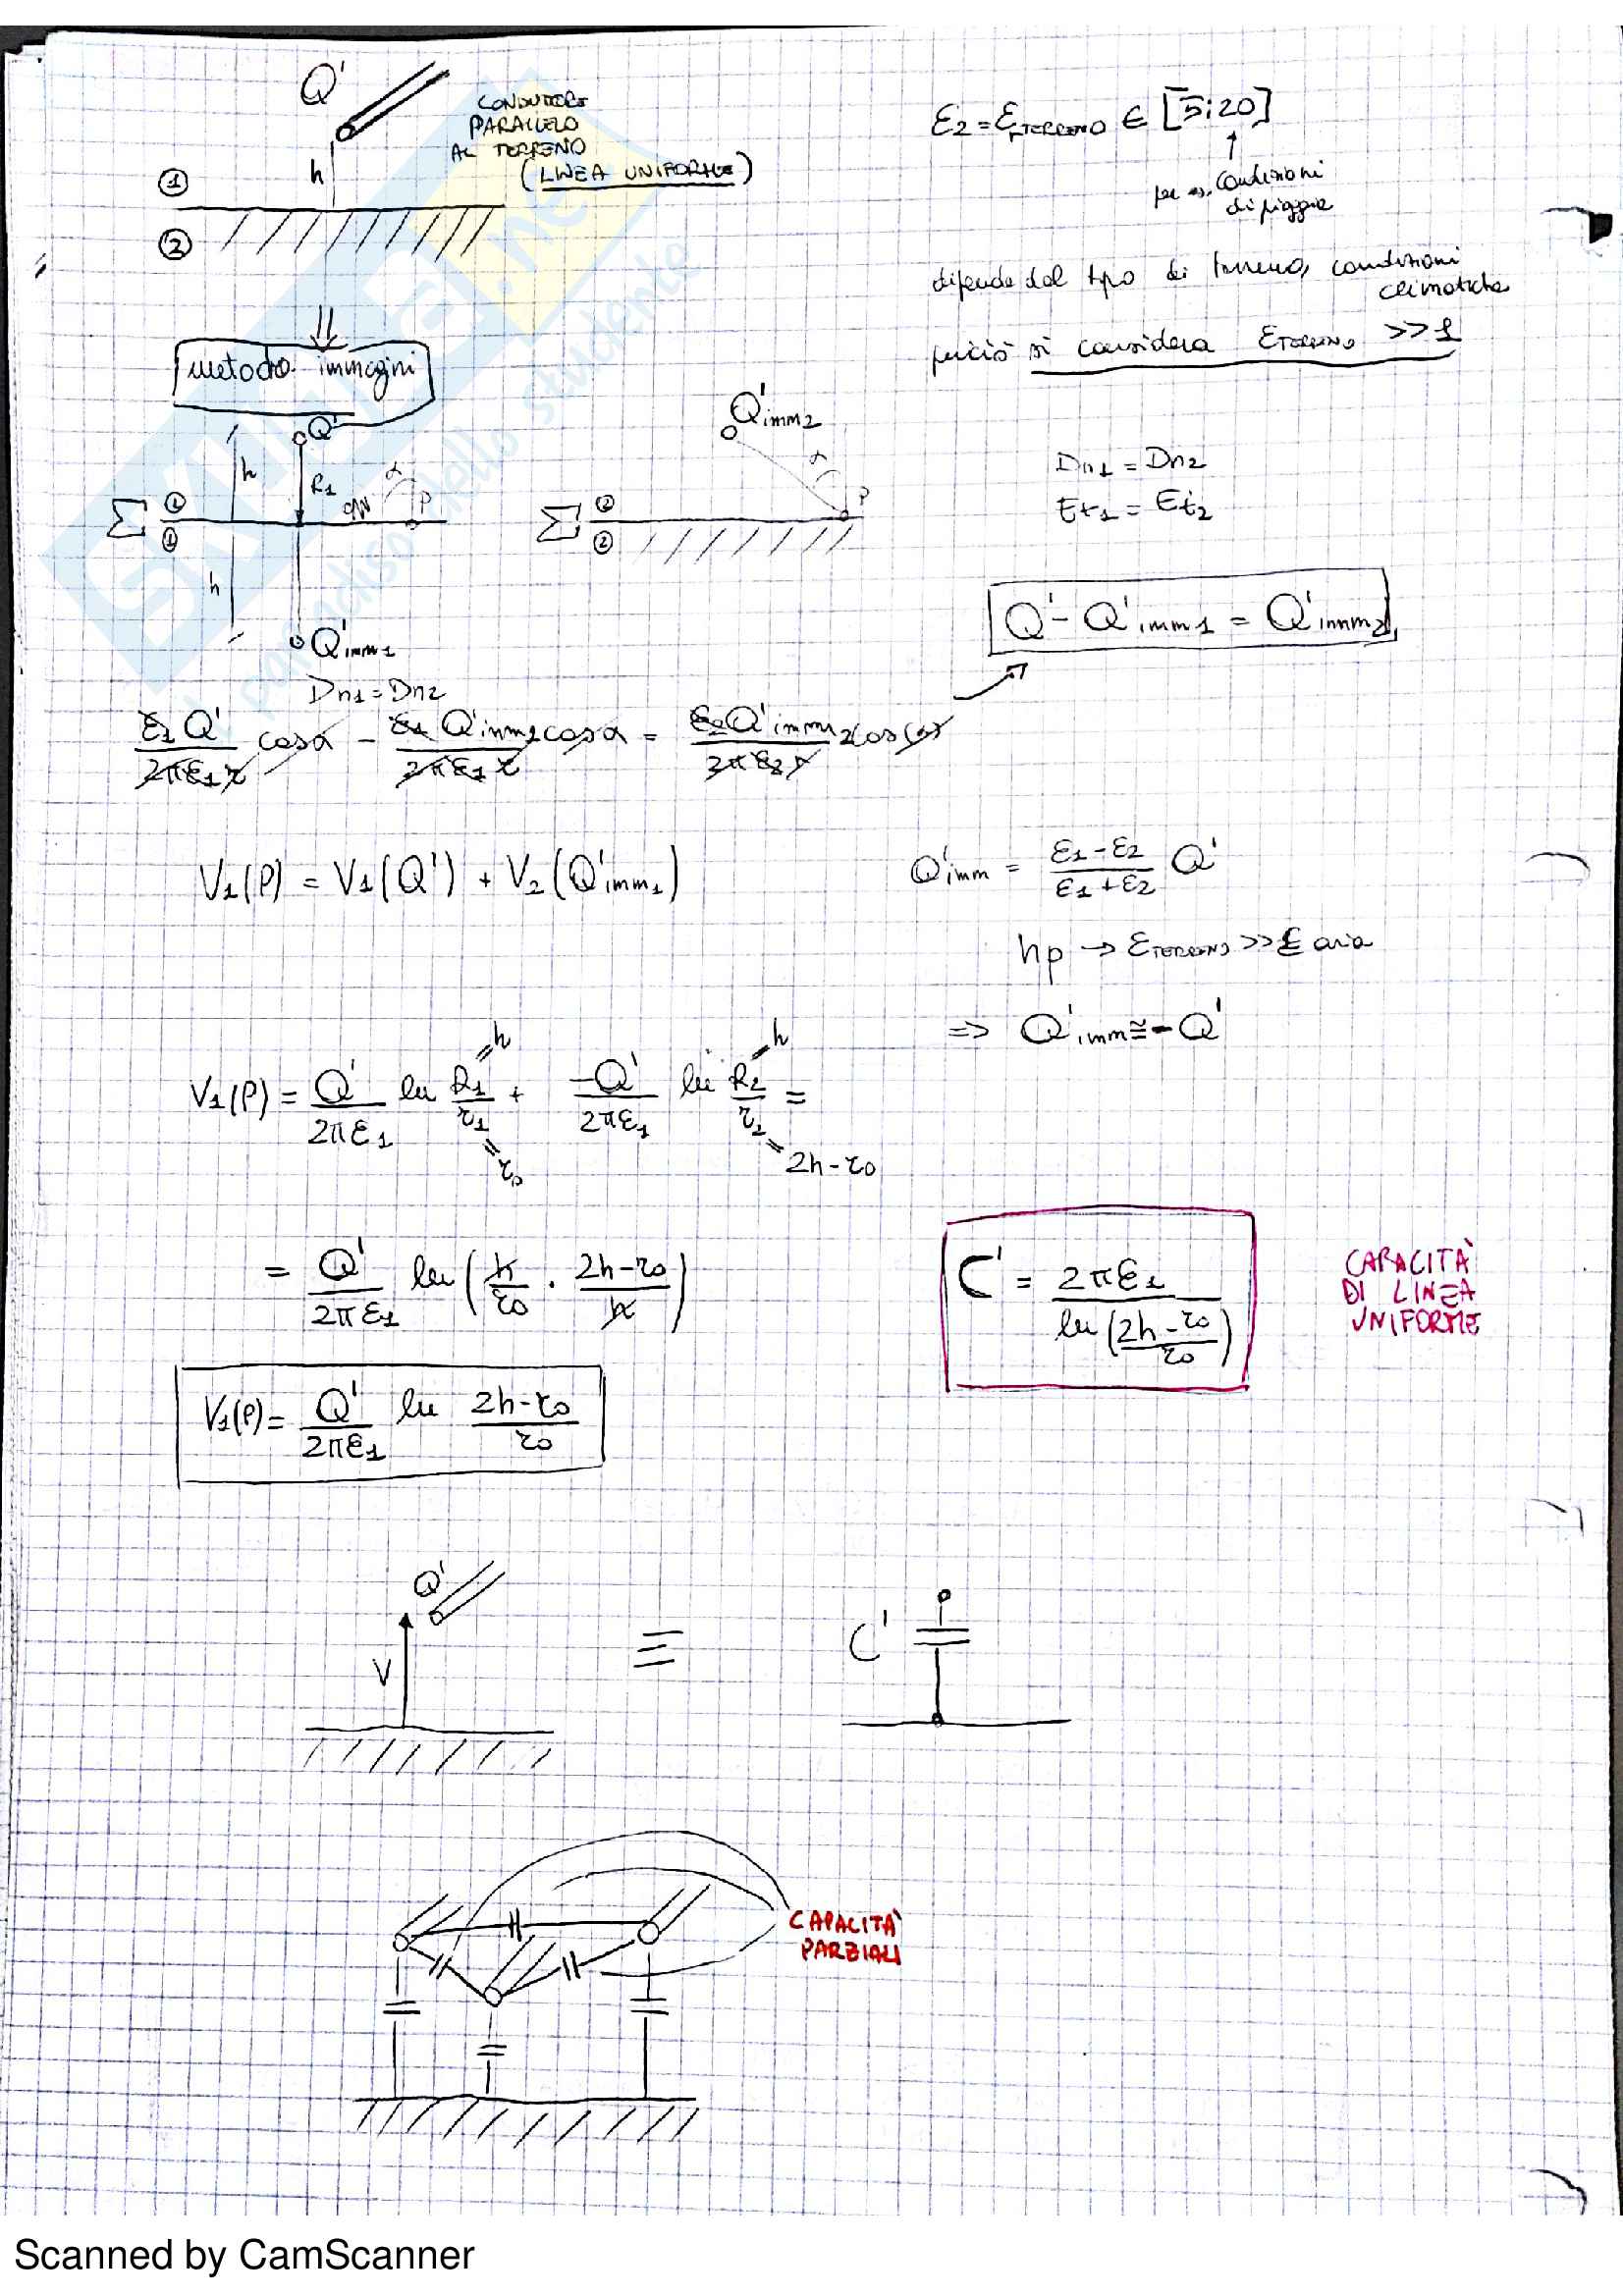 Q'
CONDUTTORE
PARALLELO
AL TERRENO
(LINEA UNIFORME)
h
①
②
ε2 = εrTERRENO ∈ [5÷20]
per es. condizioni
di pioggia
dipende dal tipo di terreno, condizioni
climatiche
perciò si considera εTERRENO >> 1
metodo immagini
Q'
h
R1
α
P
Σ
①
①
h
Q'imm1
Q'imm2
α
P
Σ
②
②
Dn1 = Dn2
Et1 = Et2
Q' - Q'imm1 = Q'imm2
Dn1 = Dn2
ε1 Q' / 2πε1 r cosα - ε1 Q'imm1 / 2πε1 r cosα = ε2 Q'imm2 / 2πε2 r cos(α)
V1(P) = V1(Q') + V2(Q'imm1)
Q'imm = (ε1 - ε2) / (ε1 + ε2) Q'
hp → εTERRENO >> ε aria
⇒ Q'imm ≅ - Q'
V1(P) = Q' / 2πε1 ln R1 / r1 + -Q' / 2πε1 ln R2 / r2 =
= h
= r0
= h
= 2h - r0
= Q' / 2πε1 ln (h / r0 · 2h - r0 / h)
C' = 2πε1 / ln (2h - r0 / r0)
CAPACITÀ
DI LINEA
UNIFORME
V1(P) = Q' / 2πε1 ln 2h - r0 / r0
Q'
V
≡
C'
CAPACITÀ
PARZIALI
Scanned by CamScanner